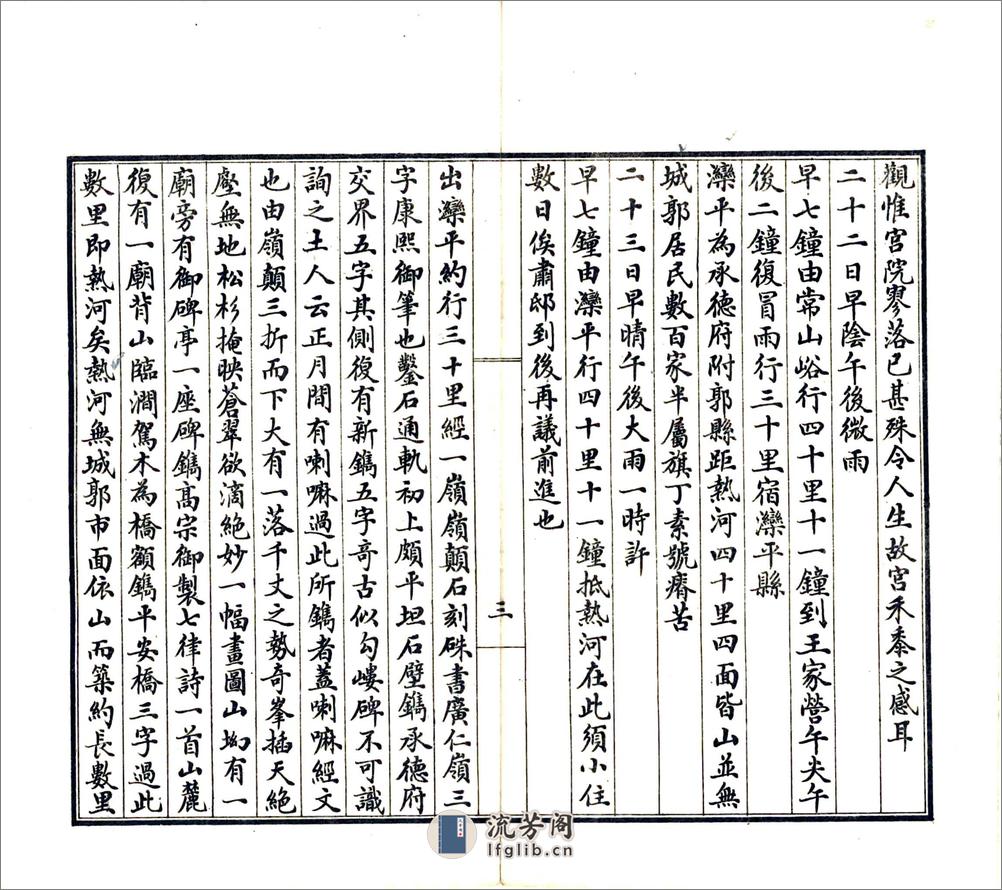 觀惟宮院寥落已甚殊令人生故宮禾黍之感耳
二十二日早陰午後微雨
早七鐘由常山峪行四十里十一鐘到王家營午尖午
後二鐘復冒雨行三十里宿灤平縣
灤平為承德府附郭縣距熱河四十里四面皆山並無
城郭居民數百家半屬旗丁素號瘠苦
二十三日早晴午後大雨一時許
早七鐘由灤平行四十里十一鐘抵熱河在此須小住
數日俟肅邸到後再議前進也
三
出灤平約行三十里經一嶺嶺顛石刻硃書廣仁嶺三
字康熙御筆也鑿石通軌初上頗平坦石壁鐫承德府
交界五字其側復有新鐫五字奇古似勾嶁碑不可識
詢之土人云正月間有喇嘛過此所鐫者蓋喇嘛經文
也由嶺顛三折而下大有一落千丈之勢奇峯插天絕
壑無地松杉掩映蒼翠欲滴絕妙一幅畫圖山坳有一
廟旁有御碑亭一座碑鐫高宗御製七律詩一首山麓
復有一廟背山臨澗駕木為橋額鐫平安橋三字過此
數里即熱河矣熱河無城郭市面依山而築約長數里
流芳阁
lfglib.cn